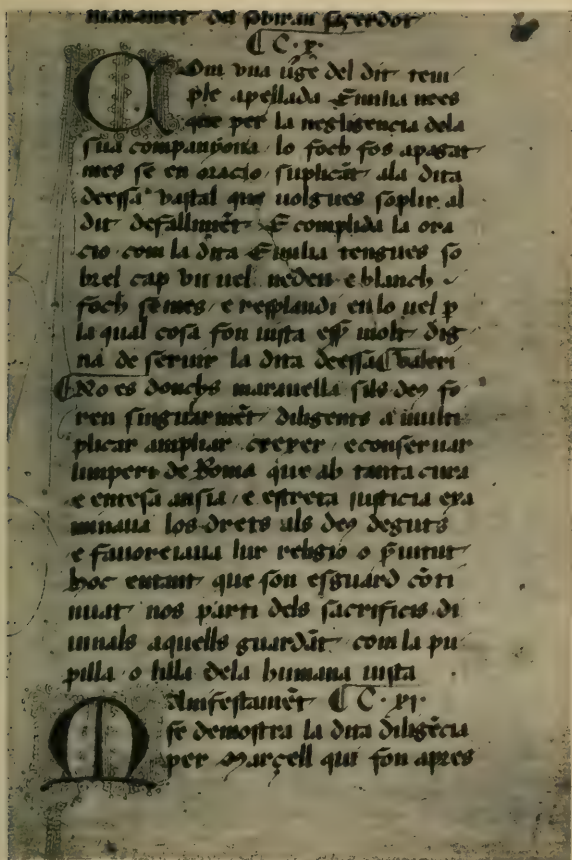 manamēt del sobiran sacerdot
C. x.
Com vna ūge del dit tem
ple apellada Emilia nees
que per la negligencia dela
sua companyona lo foch fos apagat
mes se en oracio suplicāt ala dita
deessa vastal que uolgues soplir al
dit defallimēt E complida la ora
cio com la dita Emilia tengues so
brel cap vn uel neden e blanch
foch semes e resplandi en lo uel p
la qual cosa fon uista esser molt dig
na de seruir la dita deessa Valeri
No es donchs marauella sils deus fo
ren singularmēt diligents a multi
plicar ampliar crexer e conseruar
limperi de Roma que ab tanta cura
e entesa ansia e estreta iusticia exa
minaua los drets als deus deguts
e fauoreiaua lur religio o p̄uitut
hoc entant que son esguard cōti
nuat nos parti dels sacrificis di
uinals aquells guardāt com la pu
pilla o filla dela humana uista
C. xi.
Manifestamēt
se demostra la dita diligēcia
per Marçell qui fon apres